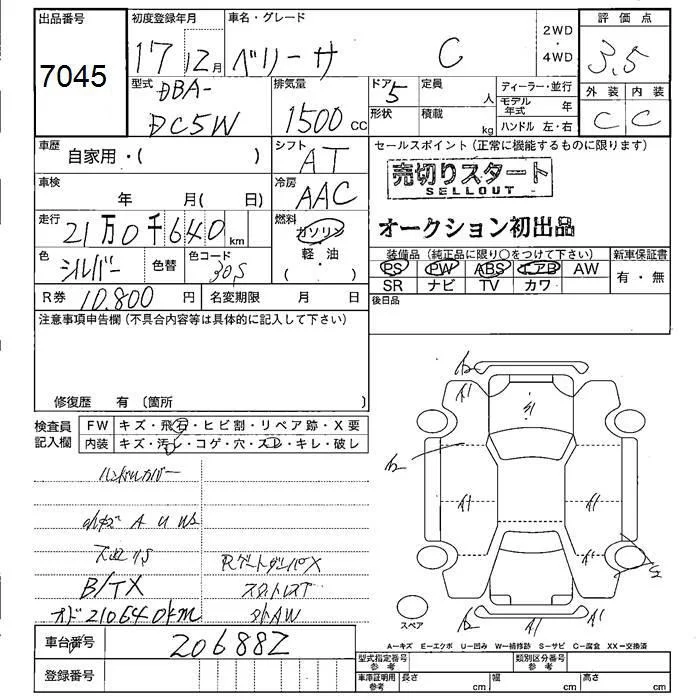 出品番号 初度登録年月 車名・グレード 2WD ・ 4WD 評価点
7045 17 12月 ベリーサ C 3.5
型式 排気量 ドア 定員 人 ディーラー・並行 外装 内装
DBA- DC5W 1500 cc 5 形状 積載 kg モデル年式 年 ハンドル 左・右 C C
車歴 自家用・( ) シフト AT セールスポイント(正常に機能するものに限ります)
車検 年 月( 日) 冷房 AAC 売切りスタート
SELLOUT
走行 21万0千640km 燃料 ガソリン オークション初出品
軽・油
色 シルバー 色替 色コード 30S ( ) 装備品(純正品に限り○をつけて下さい) 新車保証書
PS PW ABS エアB AW 有・無
SR ナビ TV カワ
R券 10.800円 名変期限 月 日 後日品
注意事項申告欄(不具合内容等は具体的に記入して下さい)
修復歴 有 〔箇所 〕
検査員記入欄 FW キズ・飛石・ヒビ割・リペア跡・X要
内装 キズ・汚レ・コゲ・穴・スレ・キレ・破レ
ハンドルカバー
A U W
B/TX
オド210640km
A1 A1 A1 A1 A1
スペア
A-キズ E-エクボ U-凹み W-補修跡 S-サビ C-腐食 XX-交換済
車台番号 206882
型式指定番号 参考 類別区分番号 参考
登録番号 車庫証明用 参考 長さ cm 幅 cm 高さ cm